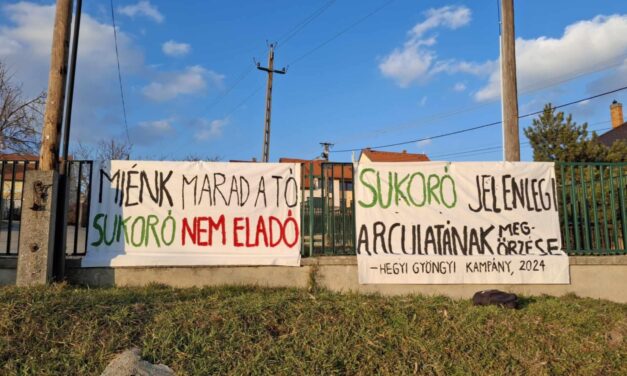 MIÉNK MARAD A TÓ
SUKORÓ NEM ELADÓ
SUKORÓ JELENLEGI
ARCULATÁNAK MEG-
ŐRZÉSE
- HEGYI GYÖNGYI KAMPÁNY, 2024